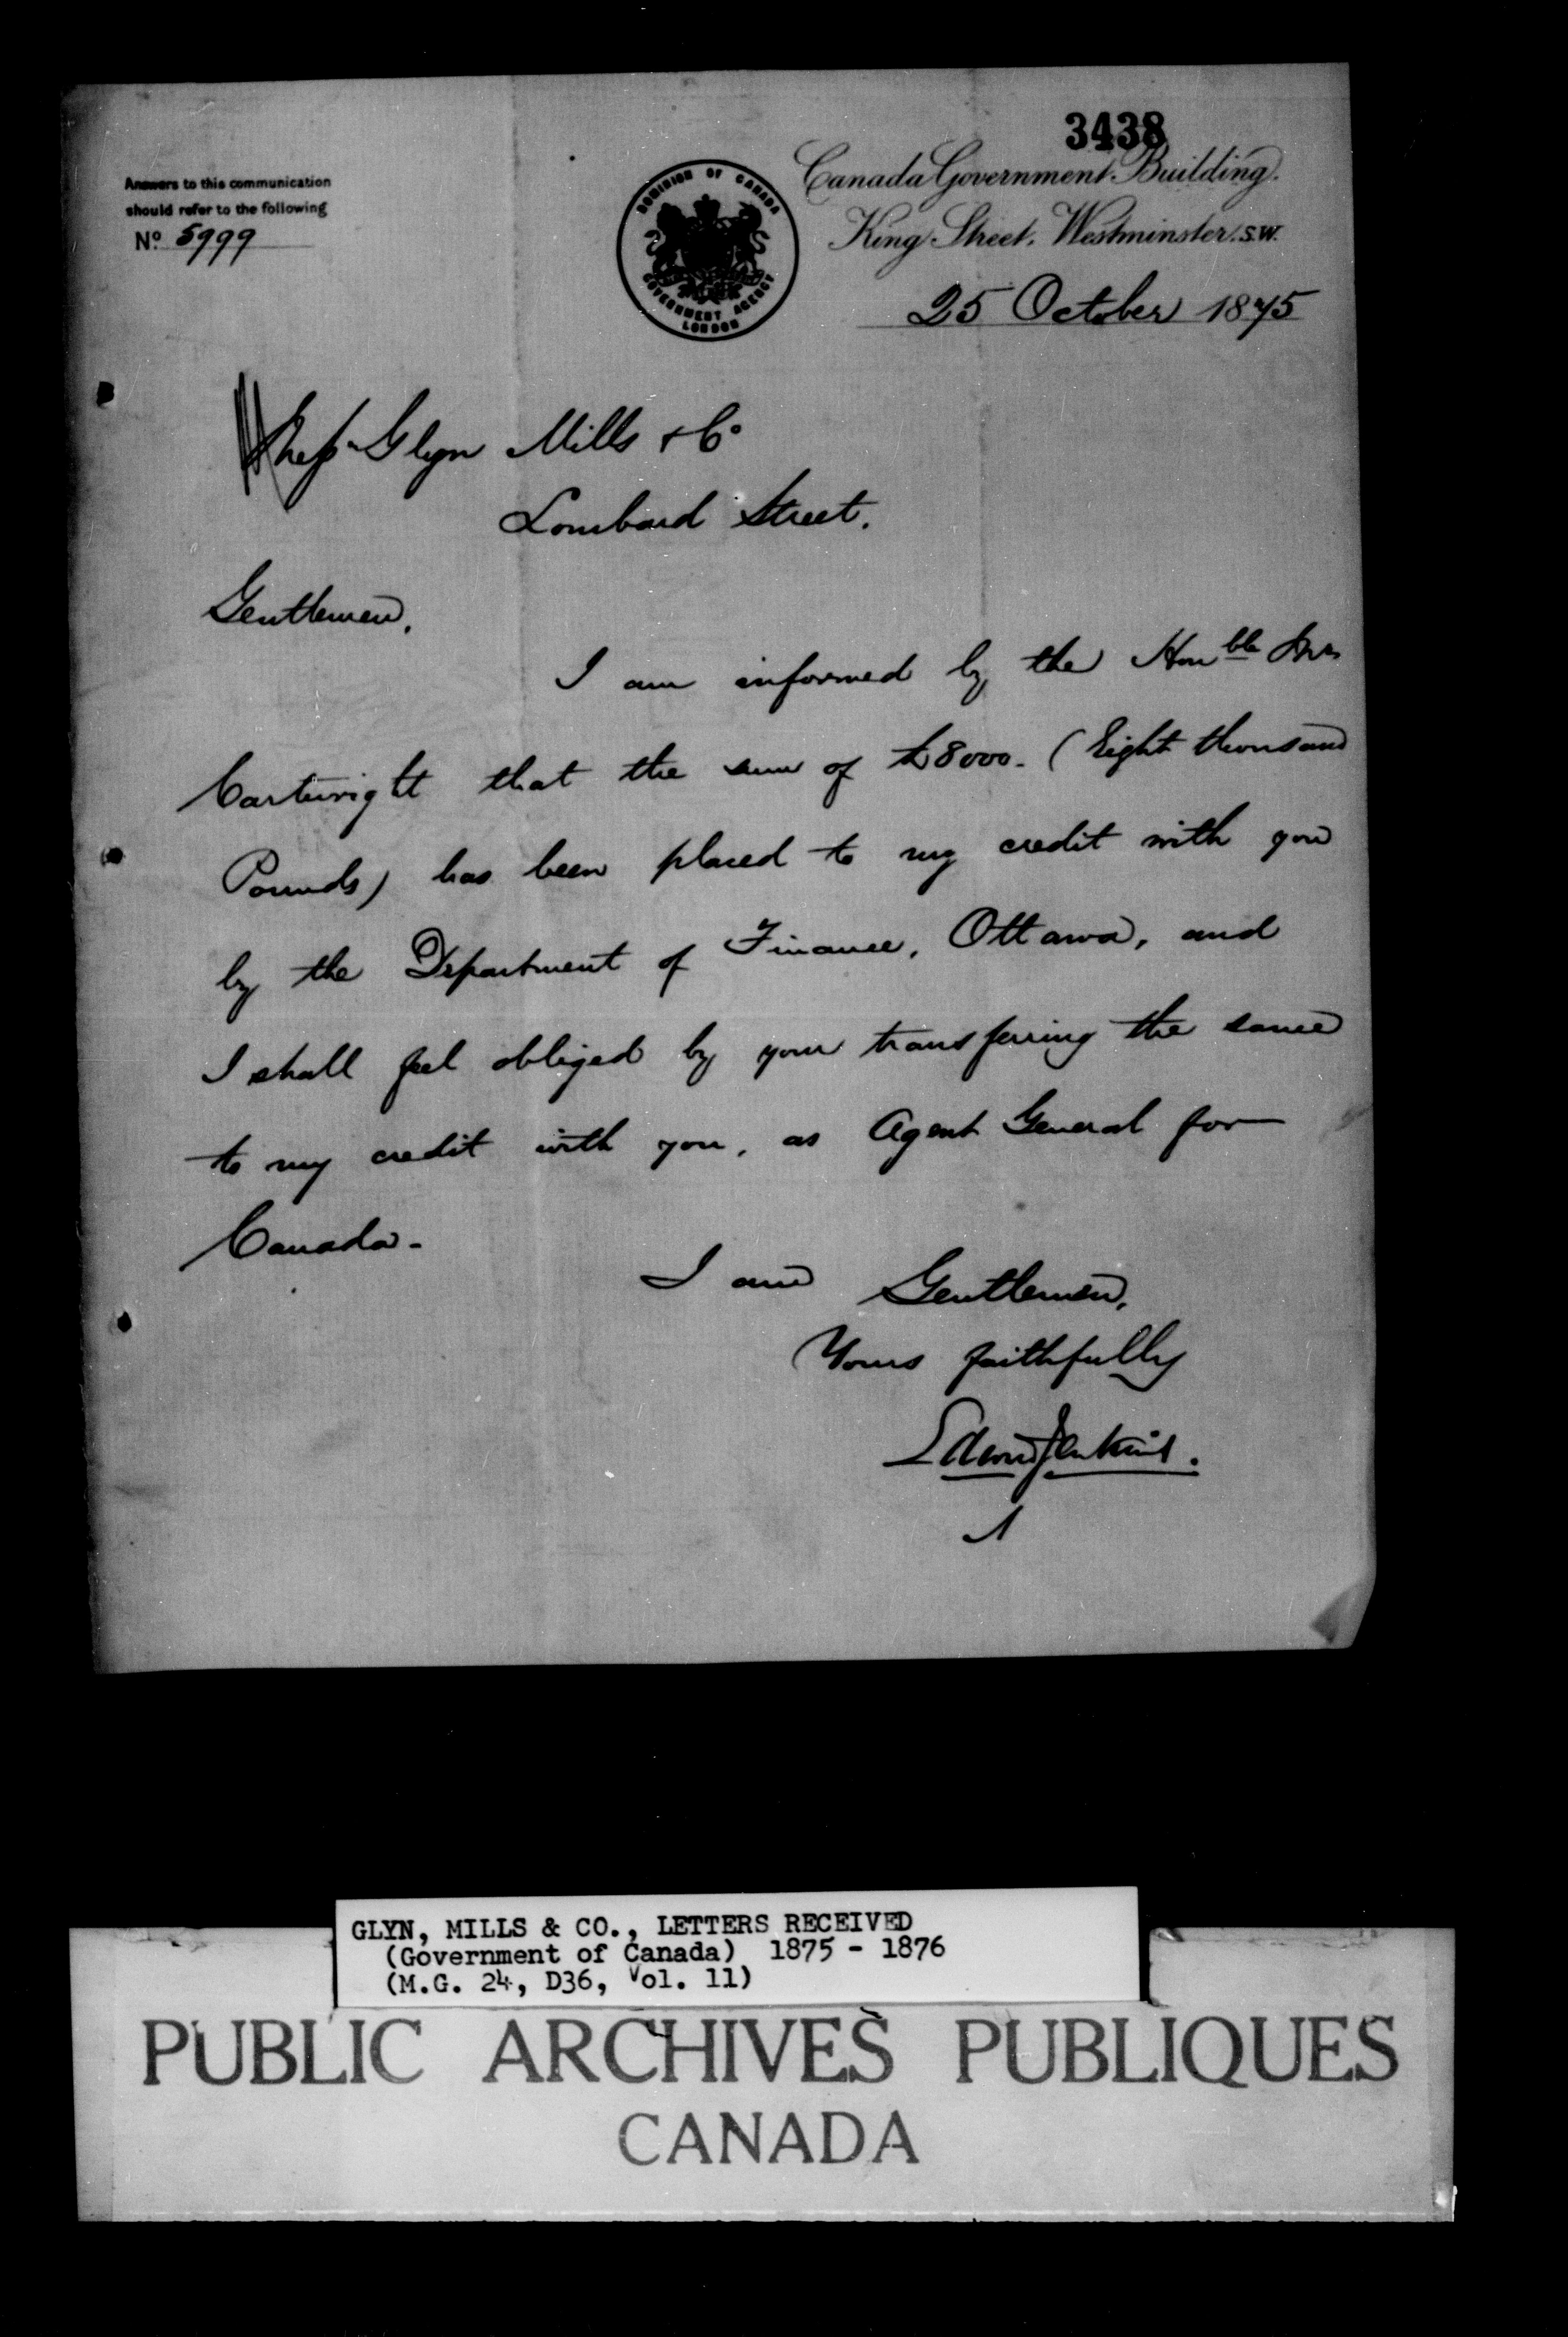 3438
Answers to this communication
should refer to the following
No. 5999
DOMINION OF CANADA
GOVERNMENT AGENCY
LONDON
Canada Government Building.
King Street, Westminster. S.W.
25 October 1875
Messrs Glyn Mills & Co
Lombard Street.
Gentlemen,
I am informed by the Honble Mr
Cartwright that the sum of £8000. (Eight thousand
Pounds) has been placed to my credit with you
by the Department of Finance, Ottawa, and
I shall feel obliged by your transferring the same
to my credit with you, as Agent General for
Canada.
I am Gentlemen,
Yours faithfully
Edwd Jenkins.
GLYN, MILLS & CO., LETTERS RECEIVED
(Government of Canada) 1875 - 1876
(M.G. 24, D36, Vol. 11)
PUBLIC ARCHIVES PUBLIQUES
CANADA